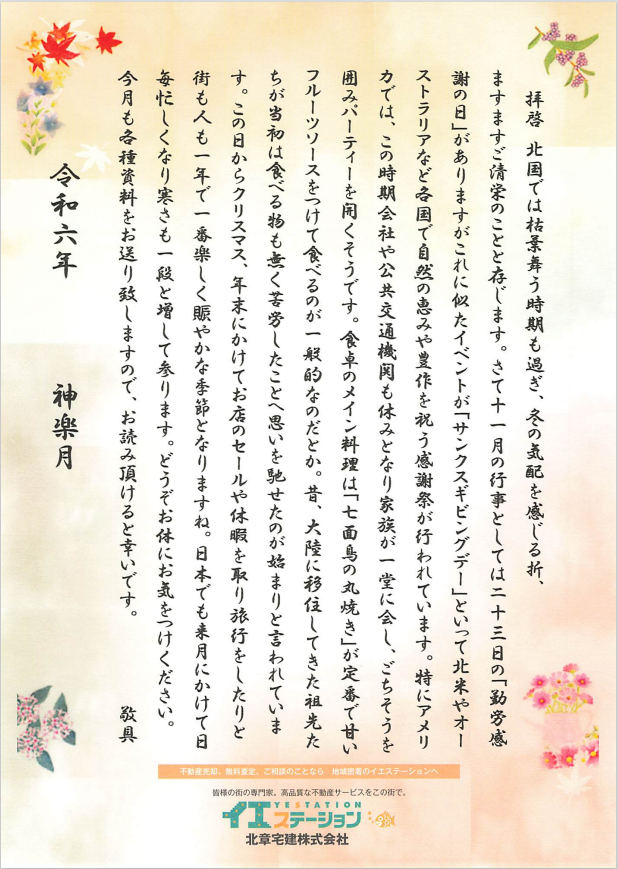 拝啓　北国では枯葉舞う時期も過ぎ、冬の気配を感じる折、
ますますご清栄のことと存じます。さて十一月の行事としては二十三日の「勤労感
謝の日」がありますがこれに似たイベントが「サンクスギビングデー」といって北米やオー
ストラリアなど各国で自然の恵みや豊作を祝う感謝祭が行われています。特にアメリ
カでは、この時期会社や公共交通機関も休みとなり家族が一堂に会し、ごちそうを
囲みパーティーを開くそうです。食卓のメイン料理は「七面鳥の丸焼き」が定番で甘い
フルーツソースをつけて食べるのが一般的なのだとか。昔、大陸に移住してきた祖先た
ちが当初は食べる物も無く苦労したことへ思いを馳せたのが始まりと言われていま
す。この日からクリスマス、年末にかけてお店のセールや休暇を取り旅行をしたりと
街も人も一年で一番楽しく賑やかな季節となりますね。日本でも来月にかけて日
毎忙しくなり寒さも一段と増して参ります。どうぞお体にお気をつけください。
今月も各種資料をお送り致しますので、お読み頂けると幸いです。
敬具
令和六年　神楽月
不動産売却、無料査定、ご相談のことなら　地域密着のイエステーションへ
皆様の街の専門家。高品質な不動産サービスをこの街で。
YESTATION
イエステーション
北章宅建株式会社